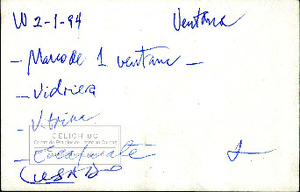 W 2-1-94 Ventana
- Marco de 1 ventana -
- Vidriera
- Vitrina
CELICH UC
- Escaparate
(USADO